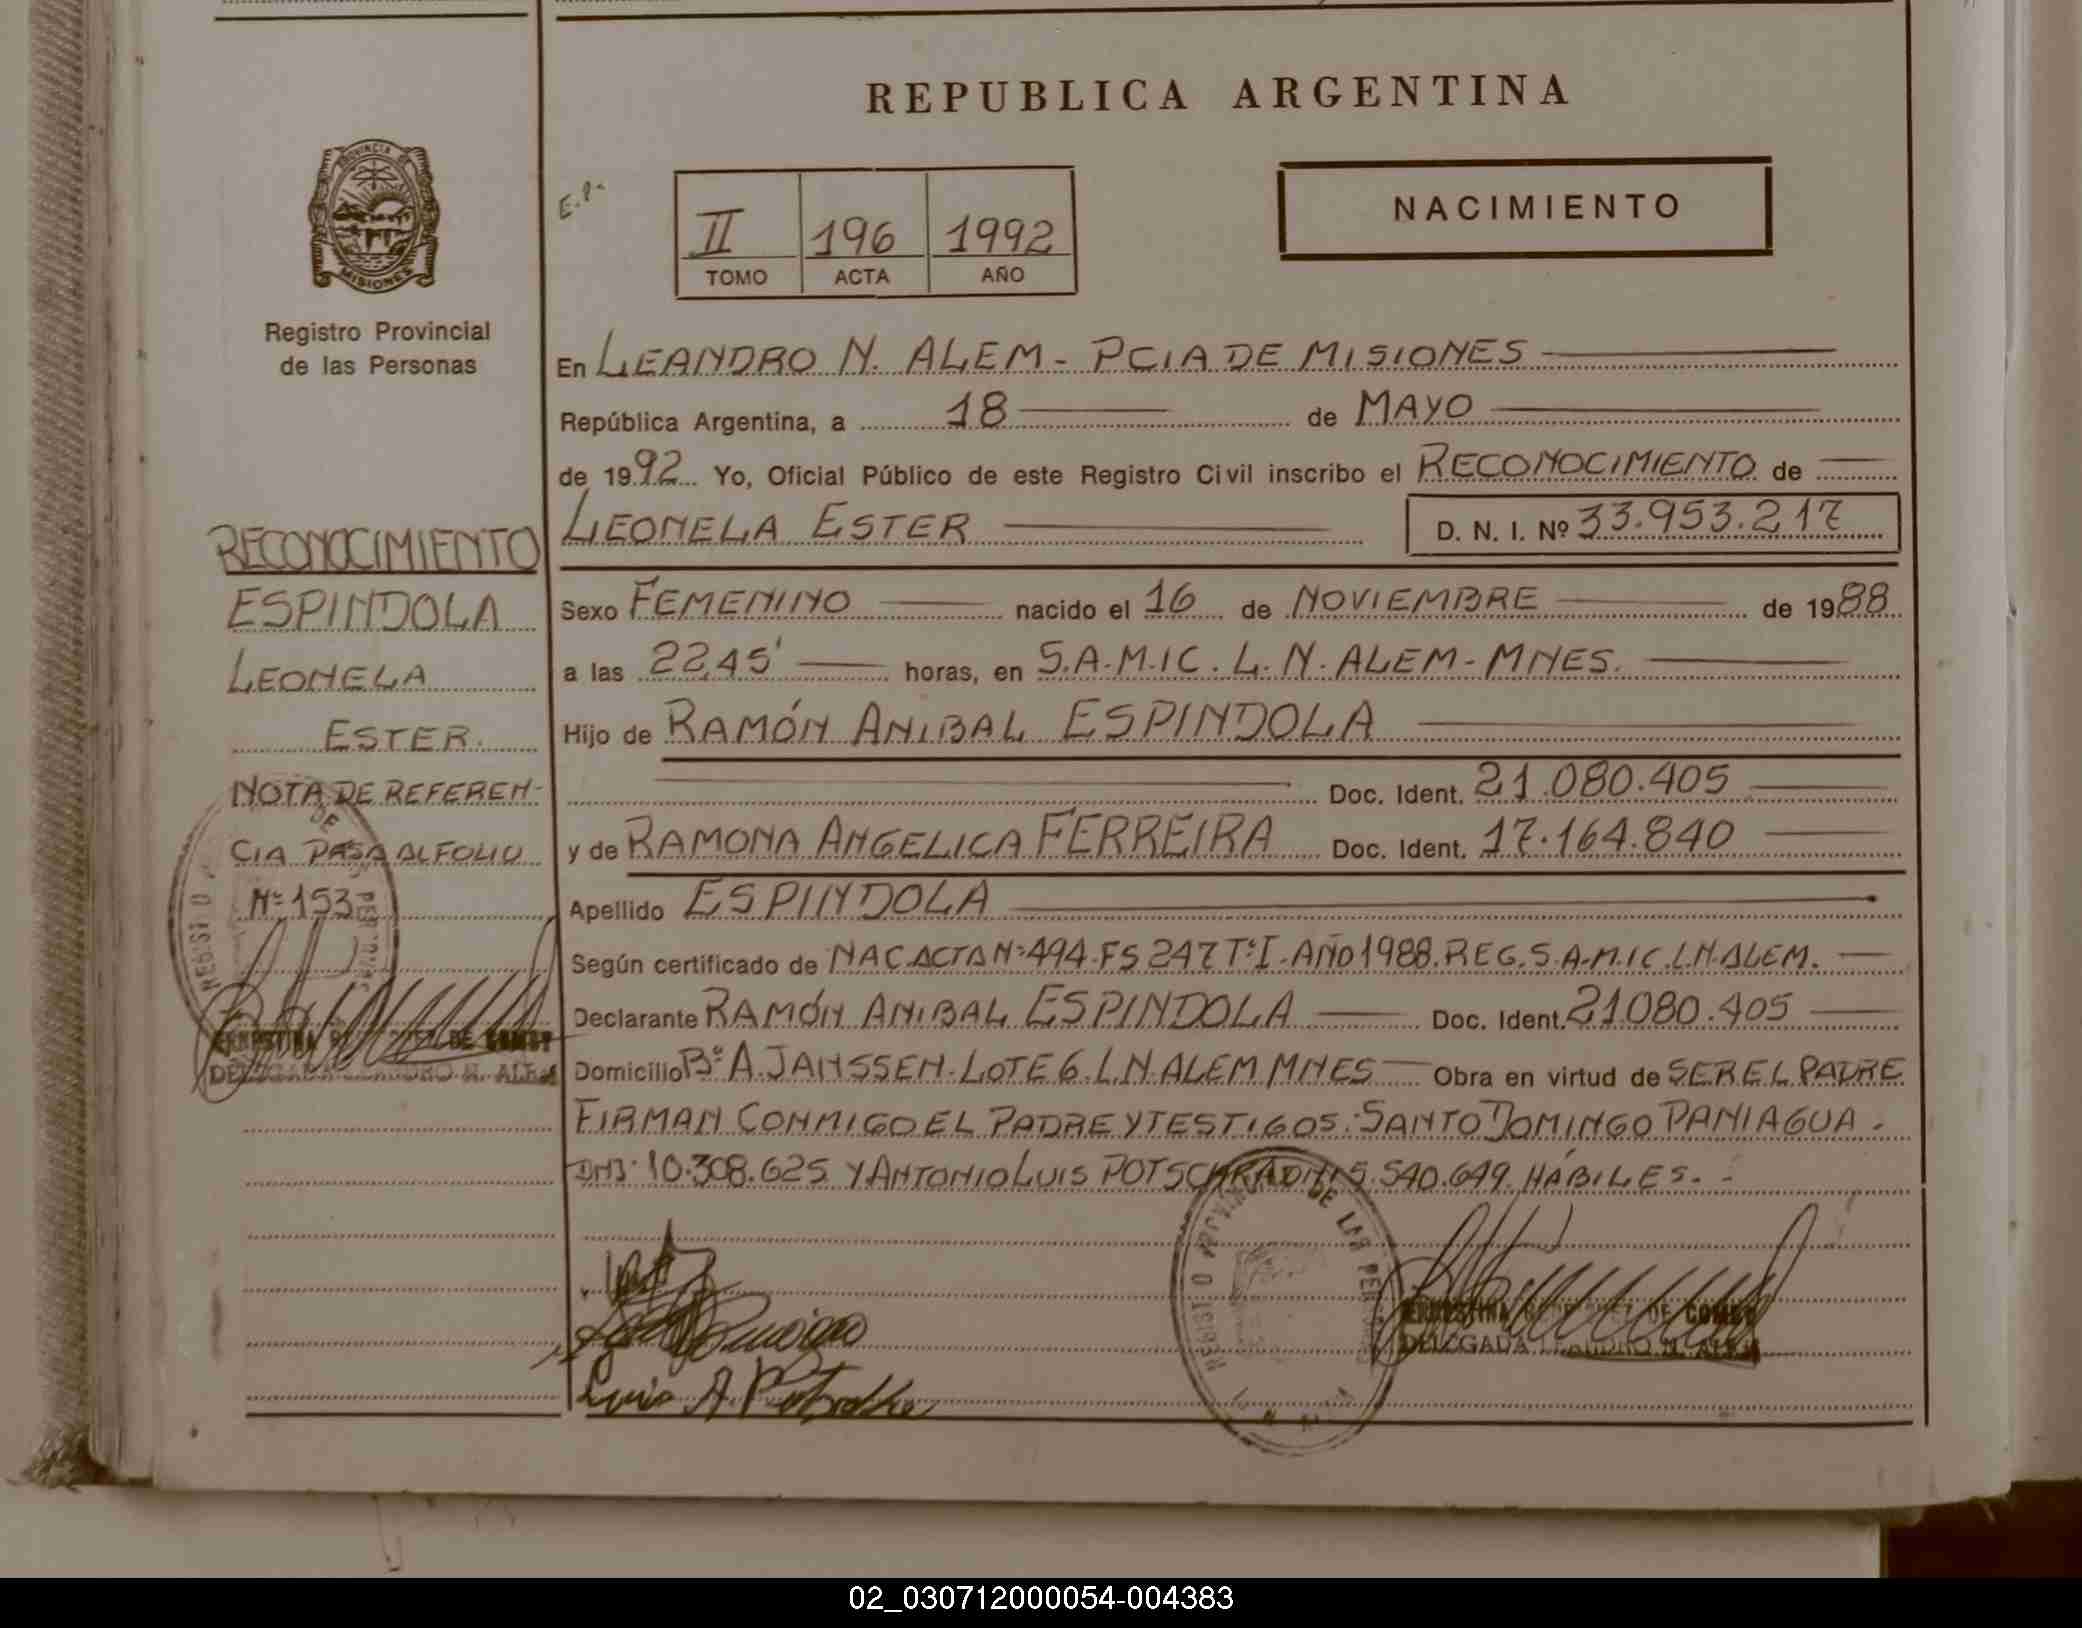 REPUBLICA ARGENTINA
PROVINCIA DE
MISIONES
Registro Provincial
de las Personas
E.P.
II 196 1992
TOMO ACTA AÑO
NACIMIENTO
En LEANDRO N. ALEM - PCIA DE MISIONES
República Argentina, a 18 de MAYO
de 1992 Yo, Oficial Público de este Registro Civil inscribo el RECONOCIMIENTO de
LEONELA ESTER D. N. I. Nº 33.953.217
Sexo FEMENINO nacido el 16 de NOVIEMBRE de 1988
a las 22,45' horas, en S.A.M.I.C. L. N. ALEM - MNES.
Hijo de RAMÓN ANIBAL ESPINDOLA
Doc. Ident. 21.080.405
y de RAMONA ANGELICA FERREIRA Doc. Ident. 17.164.840
Apellido ESPINDOLA
Según certificado de NAC ACTA Nº 494. FS 247 Tº I. AÑO 1988. REG. S.A.M.I.C. L.N. ALEM.
Declarante RAMÓN ANIBAL ESPINDOLA Doc. Ident. 21080.405
Domicilio Bº A. JANSSEN. LOTE 6. L.N. ALEM MNES Obra en virtud de SER EL PADRE
FIRMAN CONMIGO EL PADRE Y TESTIGOS: SANTO DOMINGO PANIAGUA.
DNI 10.308.625 Y ANTONIO LUIS 5.540.649. HÁBILES.
RECONOCIMIENTO
ESPINDOLA
LEONELA
ESTER.
NOTA DE REFEREN-
CIA PASA AL FOLIO
Nº 153
REGISTRO DE LAS PERSONAS
ERNESTINA DE
DELEGADA LEANDRO N. ALEM
REGISTRO PROVINCIAL DE LAS PERSONAS
Luis A.
ERNESTINA DE
DELEGADA LEANDRO N. ALEM
02_030712000054-004383